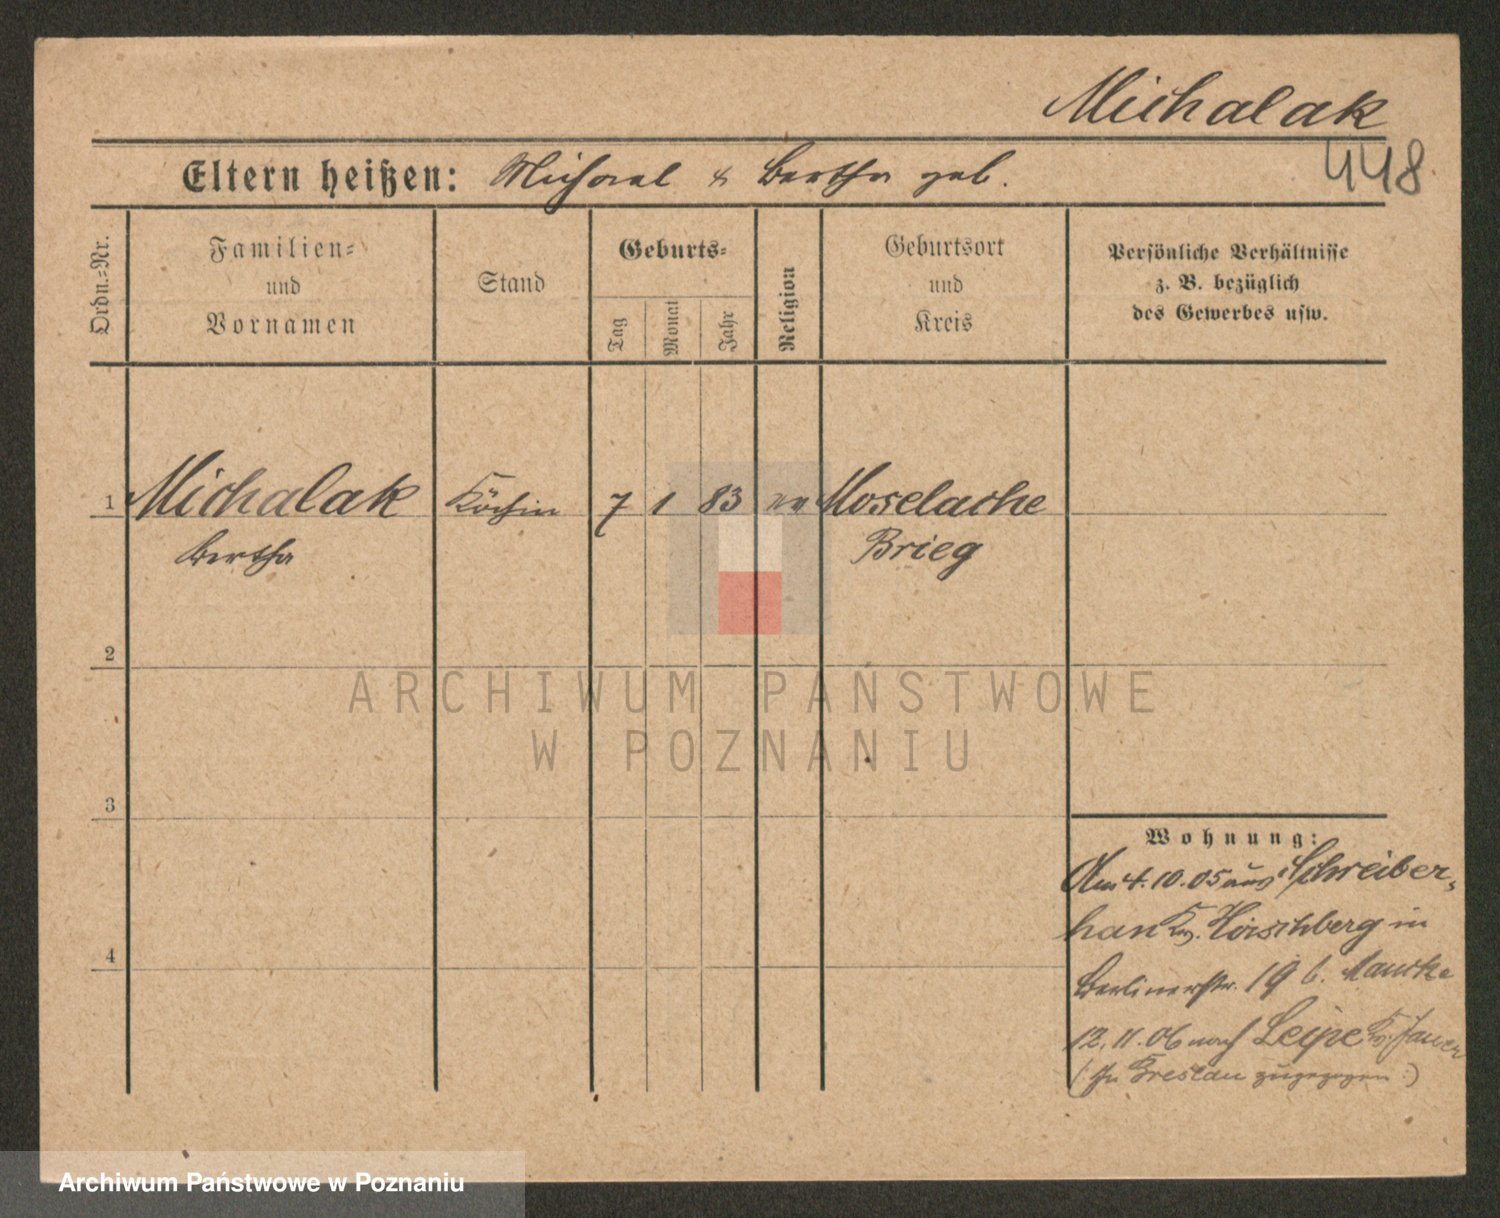 Michalak
448
Eltern heißen: Michael & Bertha geb.
Ordn.=Nr.
Familien=
und
Vornamen
Stand
Geburts=
Tag
Monat
Jahr
Religion
Geburtsort
und
Kreis
Persönliche Verhältnisse
z. B. bezüglich
des Gewerbes usw.
1 Michalak Köchin 7 1 83 ev Moselache
Bertha Brieg
2
3
4
Wohnung:
Am 4.10.05 aus Schreiber-
hau Kr. Hirschberg in
Berlinerstr. 19 b.
12.11.06 nach Leipe Kr. Jauer
(: In Breslau zugezogen :)
ARCHIWUM PAŃSTWOWE
W POZNANIU
Archiwum Państwowe w Poznaniu